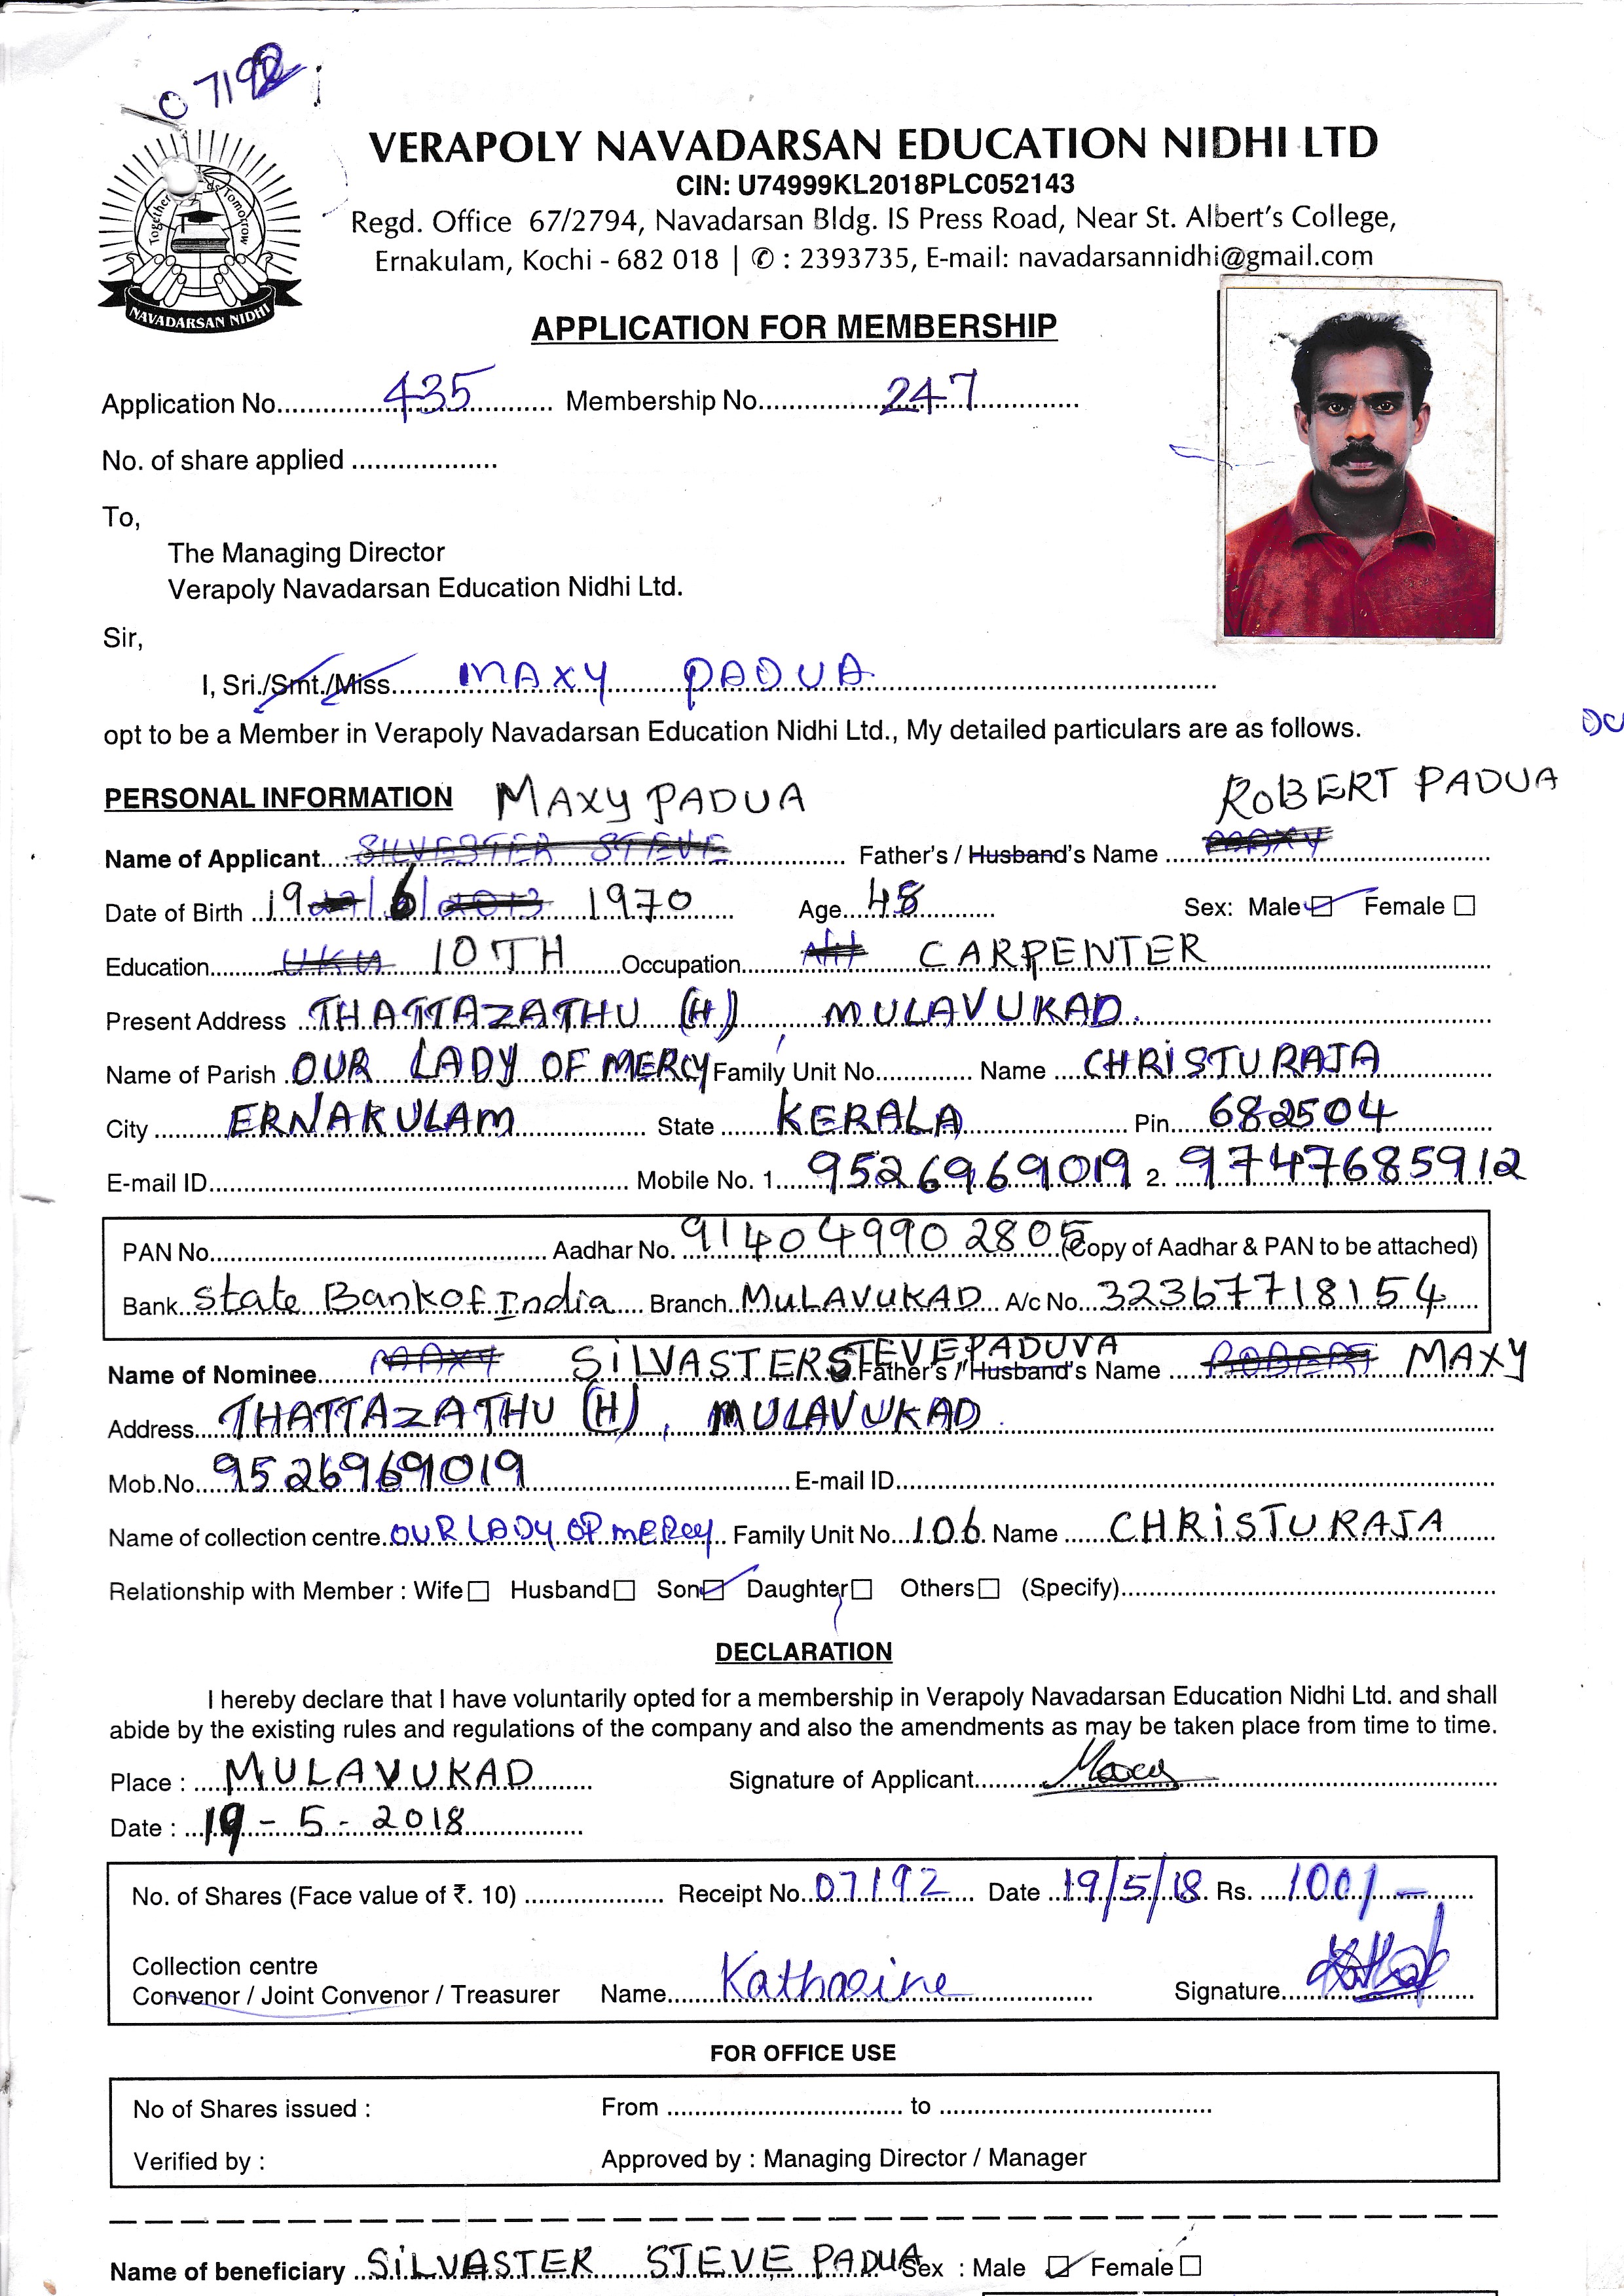 07192
VERAPOLY NAVADARSAN EDUCATION NIDHI LTD
CIN: U74999KL2018PLC052143
Regd. Office 67/2794, Navadarsan Bldg. IS Press Road, Near St. Albert's College,
Ernakulam, Kochi - 682 018 | ✆ : 2393735, E-mail: navadarsannidhi@gmail.com
Together Tomorrow
NAVADARSAN NIDHI
APPLICATION FOR MEMBERSHIP
Application No. 435 Membership No. 247
No. of share applied
To,
The Managing Director
Verapoly Navadarsan Education Nidhi Ltd.
Sir,
I, Sri./Smt./Miss. MAXY PADUA
opt to be a Member in Verapoly Navadarsan Education Nidhi Ltd., My detailed particulars are as follows.
PERSONAL INFORMATION MAXY PADUA ROBERT PADUA
Name of Applicant SILVESTER STEVE Father's / Husband's Name MAXY
Date of Birth 19 / 6 / 2013 1970 Age 48 Sex: Male ☑ Female ☐
Education UKG 10TH Occupation CARPENTER
Present Address THATTAZATHU (H), MULAVUKAD.
Name of Parish OUR LADY OF MERCY Family Unit No. Name CHRISTURAJA
City ERNAKULAM State KERALA Pin 682504
E-mail ID Mobile No. 1. 9526969019 2. 9747685912
PAN No. Aadhar No. 914049902805 (Copy of Aadhar & PAN to be attached)
Bank State Bank of India Branch MULAVUKAD A/c No. 32367718154
Name of Nominee MAXY SILVASTER STEVE PADUVA Father's / Husband's Name ROBERT MAXY
Address THATTAZATHU (H), MULAVUKAD.
Mob.No. 9526969019 E-mail ID
Name of collection centre OUR LADY OF MERCY Family Unit No. 106 Name CHRISTURAJA
Relationship with Member : Wife ☐ Husband ☐ Son ☑ Daughter ☐ Others ☐ (Specify)
DECLARATION
I hereby declare that I have voluntarily opted for a membership in Verapoly Navadarsan Education Nidhi Ltd. and shall
abide by the existing rules and regulations of the company and also the amendments as may be taken place from time to time.
Place : MULAVUKAD Signature of Applicant Maxy
Date : 19 - 5 - 2018
No. of Shares (Face value of ₹. 10) Receipt No. 07192 Date 19/5/18 Rs. 100/-
Collection centre
Convenor / Joint Convenor / Treasurer Name Katharine Signature
FOR OFFICE USE
No of Shares issued : From to
Verified by : Approved by : Managing Director / Manager
Name of beneficiary SILVASTER STEVE PADUA Sex : Male ☑ Female ☐